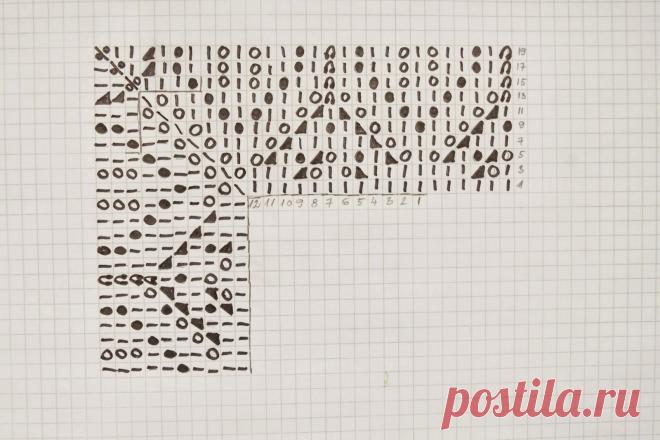 19
17
15
13
11
9
7
5
3
1
12 11 10 9 8 7 6 5 4 3 2 1
postila.ru